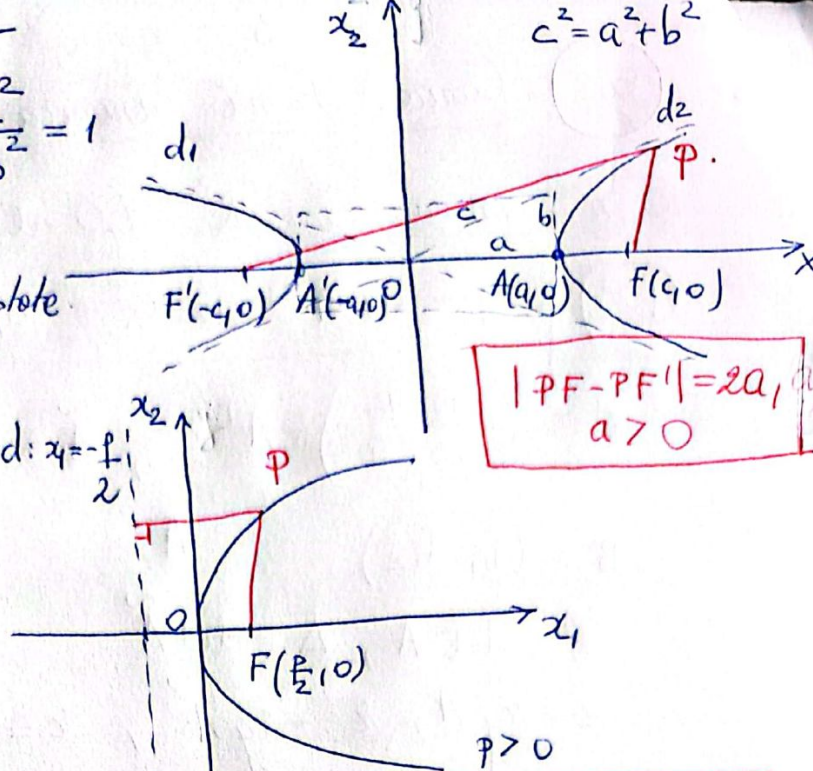 x₂
c² = a² + b²
2
2 = 1
d₁
d₂
P.
c
b
a
F'(-c,0) A'(-a,0) O A(a,0) F(c,0) x
|PF - PF'| = 2a,
a > 0
x₂
d: x₁ = -p/2
P
O
x₁
F(p/2, 0)
p > 0